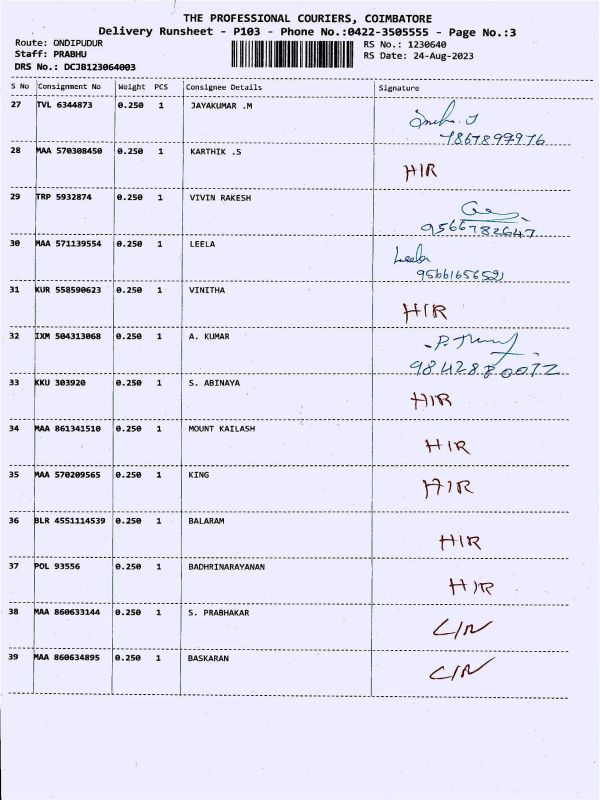 THE PROFESSIONAL COURIERS, COIMBATORE
Delivery Runsheet - P103 - Phone No.:0422-3505555 - Page No.:3
Route: ONDIPUDUR
RS No.: 1230640
Staff: PRABHU
RS Date: 24-Aug-2023
DRS No.: DCJB123064003
S No Consignment No Weight PCS Consignee Details Signature
27 TVL 6344873 0.250 1 JAYAKUMAR .M
7867897976
28 MAA 570308450 0.250 1 KARTHIK .S
HIR
29 TRP 5932874 0.250 1 VIVIN RAKESH
9566782647
30 MAA 571139554 0.250 1 LEELA
Leela
9566165652
31 KUR 558590623 0.250 1 VINITHA
HIR
32 IXM 504313068 0.250 1 A. KUMAR
9842880072
33 KKU 303920 0.250 1 S. ABINAYA
HIR
34 MAA 861341510 0.250 1 MOUNT KAILASH
HIR
35 MAA 570209565 0.250 1 KING
HIR
36 BLR 4551114539 0.250 1 BALARAM
HIR
37 POL 93556 0.250 1 BADHRINARAYANAN
HIR
38 MAA 860633144 0.250 1 S. PRABHAKAR
C/N
39 MAA 860634895 0.250 1 BASKARAN
C/N